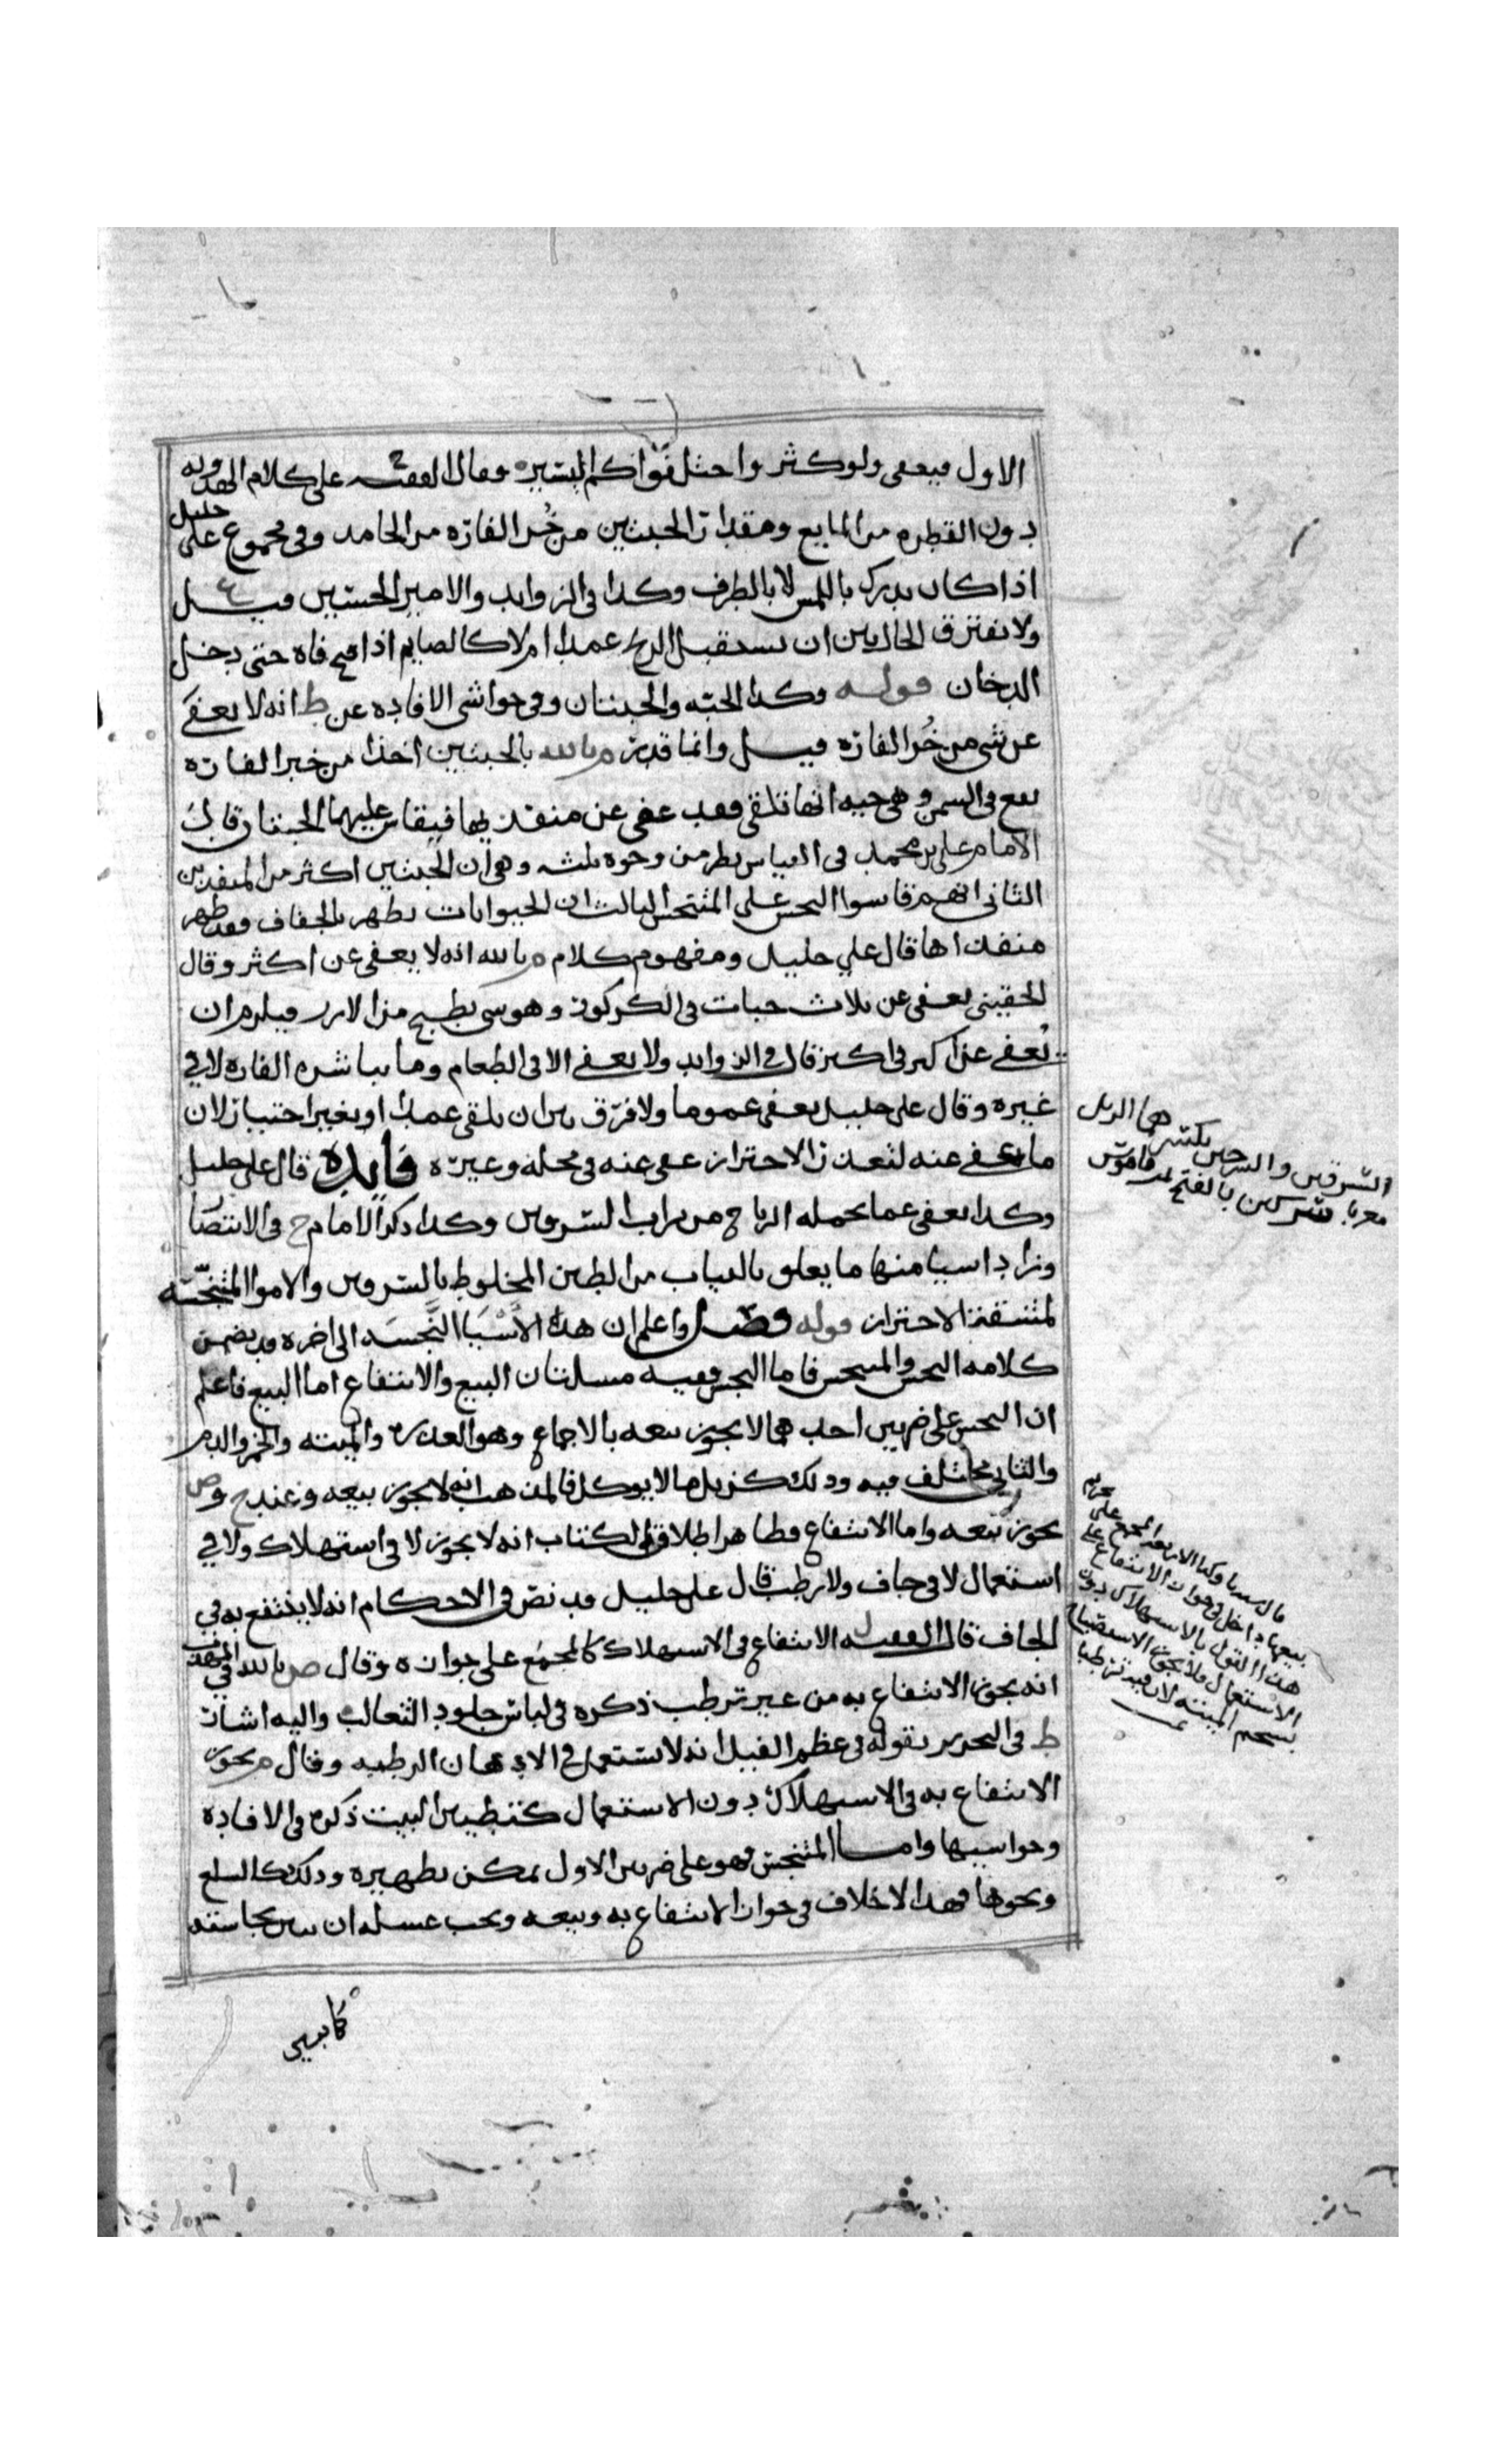 الاول فيعفى ولو كثر واحتل فواكم اليسيره وقال الفقيه على كلام الهدويه
دون القطره من المايع ومقدار الحبتين من خُر الفاره من الجامد وفي مجموع علي خليل
اذا كان يدرك باللمس لا بالطرف وكذا في الزوايد والامير الحسين قيل
ولا يفترق الحال بين ان يستقبل الريح عمدا ام لا كالصايم اذا فتح فاه حتى دخل
الدخان قوله وكذا الحبه والحبتان وفي حواشي الافاده عن ط انه لا يعفى
عن شي من خُر الفاره قيل وانما قدر م بالله بالحبتين اخذا من خبر الفاره
تقع في السمن وهي حيه انها تلقى فقد عفي عن منفذيها فيقاس عليهما الحبتان قال
الامام علي بن محمد في القياس نظر من وجوه ثلثه وهي ان الحبتين اكثر من المنفذين
الثاني انهم قاسوا النجس على المتنجس الثالث ان الحيوانات تطهر بالجفاف فقد طهر
منفذاها قال علي خليل ومفهوم كلام م بالله انه لا يعفى عن اكثر وقال
الحقيني يعفى عن ثلاث حبات في الكركوز وهو شي يطبخ من الارز فيلزم ان
يُعفى عن اكثر في اكثر قال في الزوايد ولا يعفى الا في الطعام وما يباشره الفاره لا في
غيره وقال علي خليل يعفى عموما ولا فرق بين ان يلقى عمدا او بغير اختيار لان
ما يعفى عنه لتعذر الاحتراز عفي عنه في محله وغيره فايده قال علي خليل
وكذا يعفى عما يحمله الرياح من تراب السرقين وكذا ذكر الامام ح في الانتصار
وزاد اشيا منها ما يعلق بالثياب من الطين المخلوط بالسرقين والامواه المتنجسه
لمشقة الاحتراز قوله فصل واعلم ان هذه الاشيا النجسه الى اخره قد تضمن
كلامه النجس والمتنجس فاما النجس ففيه مسلتان البيع والانتفاع اما البيع فاعلم
ان النجس على ضربين احدهما لا يجوز بيعه بالاجماع وهو العذره والميته والخمر والدم
والثاني مختلف فيه وذلك كزبل ما لا يوكل فالمذهب انه لا يجوز بيعه وعند ح وص
يجوز بيعه واما الانتفاع فظاهر اطلاق الكتاب انه لا يجوز لا في استهلاك ولا في
استعمال لا في جاف ولا رطب قال علي خليل قد نص في الاحكام انه لا ينتفع به في
الجاف قال الفقيه ل الانتفاع في الاستهلاك كالمجمع على جوازه وقال ص بالله في المهذب
انه يجوز الانتفاع به من غير ترطب ذكره في لباس جلود الثعالب واليه اشار
ط في التحرير بقوله في عظم الفيل انه لا يستعمل في الادهان الرطبه وقال م يجوز
الانتفاع به في الاستهلاك دون الاستعمال كتطيين البيت ذكره في الافاده
وحواشيها واما المتنجس فهو على ضربين الاول يمكن تطهيره وذلك كالسلع
ونحوها فهذا لا خلاف في جواز الانتفاع به وبيعه ويجب عسله ان تبين نجاسته
السرقين والسرجين بكسرهما الزبل
معربا سركين بالفتح قاموس
بيعها داخل في جواز الانتفاع على
هذا القول بالاستهلاك دون
الاستعمال فلا يجوز الاستصباح
بشحم الميته لان فيه ترطبا